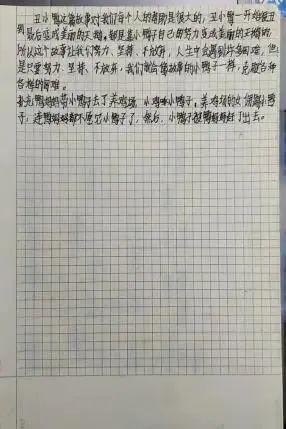 丑小鸭这篇故事对我们每个人的帮助是很大的,丑小鸭一开始很丑
到最后变成美丽的天鹅。都是靠小鸭子自己的努力变成美丽的天鹅的,
所以这个故事让我们努力、坚持、不放弃,人生中会遇到许多困难,但
是只要努力、坚持、不放弃,我们就会像故事的小鸭子一样,克服各种
各样的困难。
补充鸭妈妈带小鸭子去了养鸡场,小鸡啄小鸭子,养鸡场的
子,连鸭妈妈都不要小鸭子了,然后,小鸭子被鸭妈妈赶了出去。